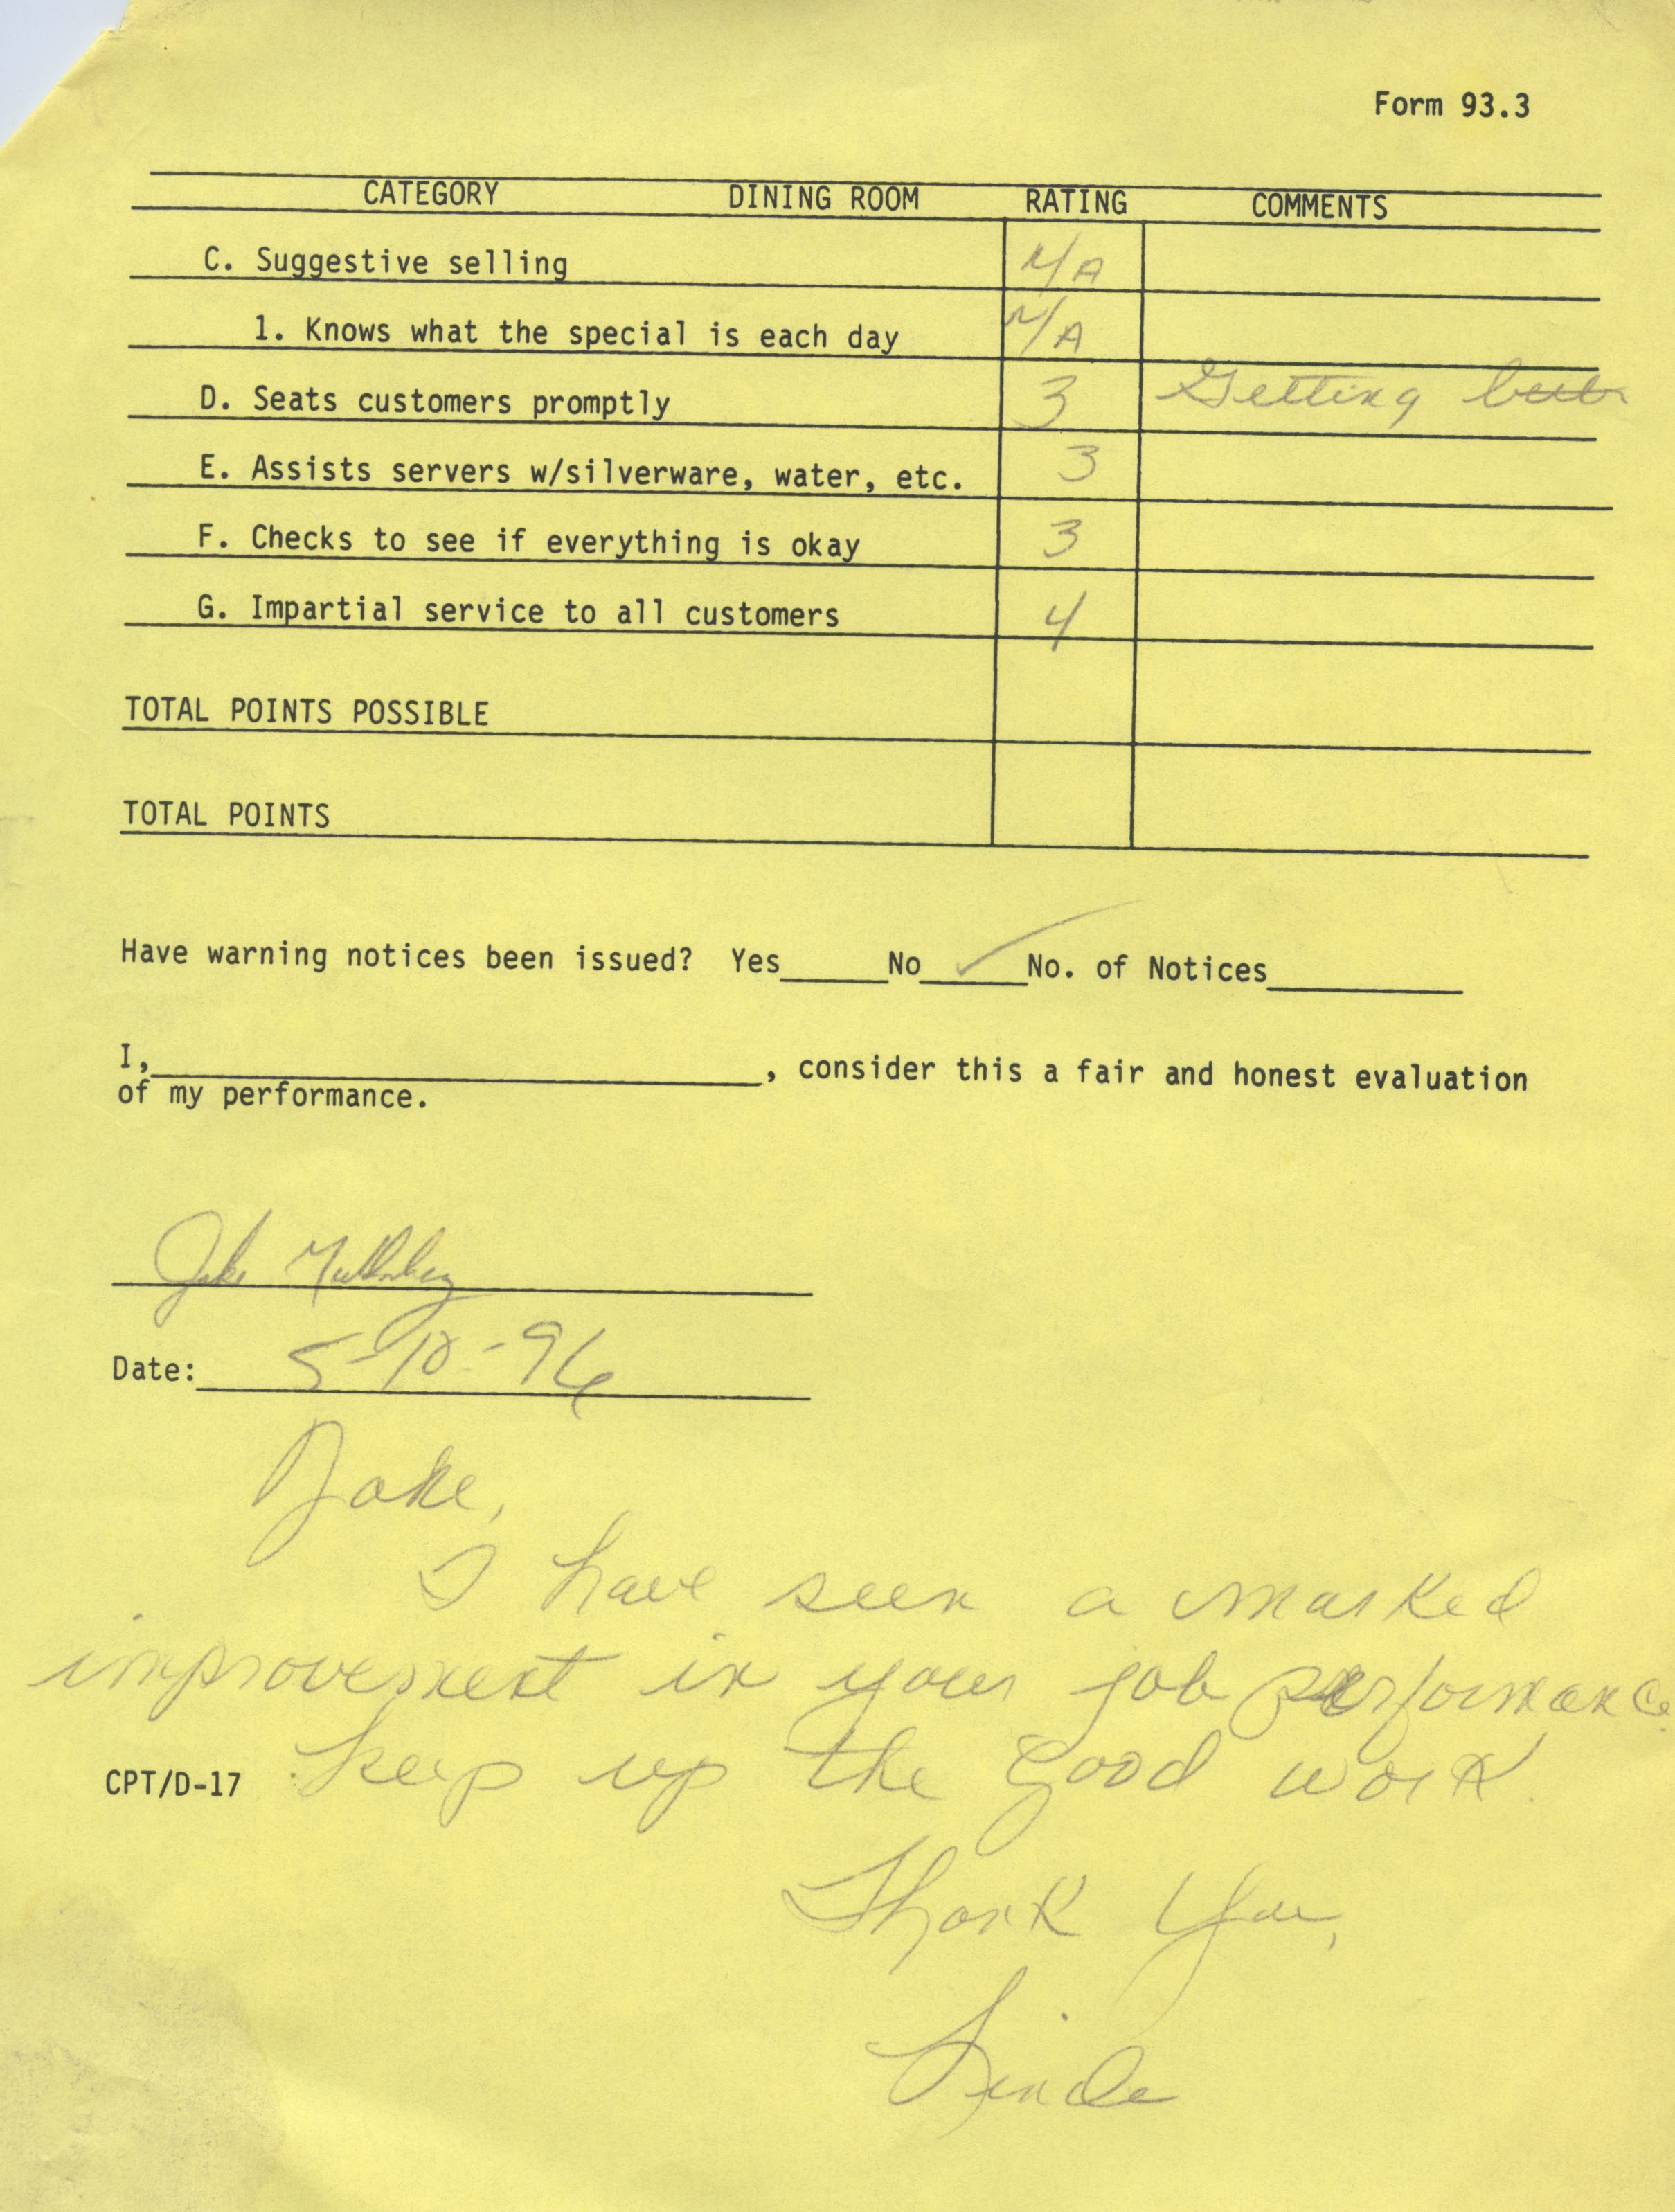 Form 93.3
CATEGORY DINING ROOM RATING COMMENTS
C. Suggestive selling N/A
1. Knows what the special is each day N/A
D. Seats customers promptly 3 Getting
E. Assists servers w/silverware, water, etc. 3
F. Checks to see if everything is okay 3
G. Impartial service to all customers 4
TOTAL POINTS POSSIBLE
TOTAL POINTS
Have warning notices been issued? Yes_____No__✓__No. of Notices_________
I,______________________________, consider this a fair and honest evaluation
of my performance.
Jake
Date: 5-10-96
Jake,
I have seen a marked
improvement in your job performance.
CPT/D-17 Keep up the good work.
Thank You,
Linda